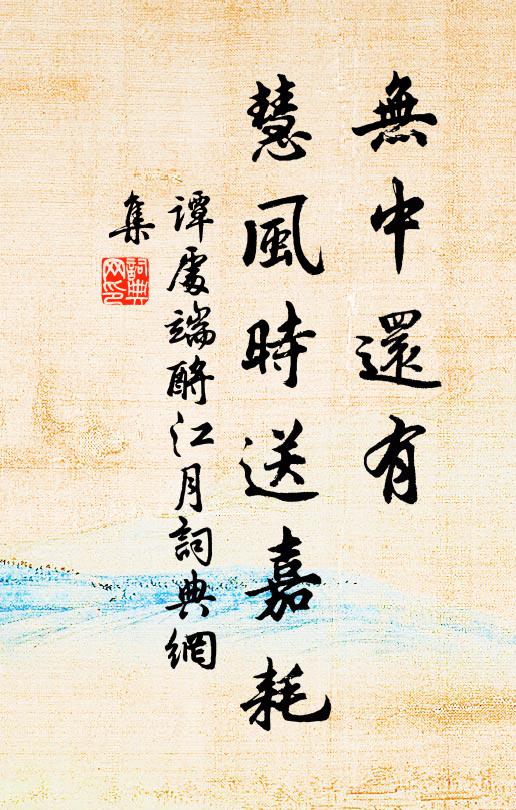 無中還有
慧風時送嘉耗
譚處端酹江月詞典網
集
詞典
网印